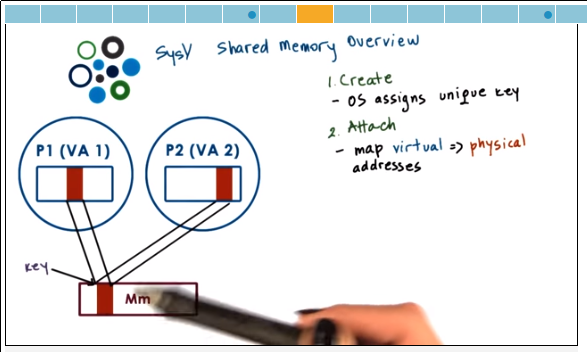 SysV Shared Memory Overview
1. Create
- OS assigns unique key
2. Attach
- map virtual => physical
addresses
P1 (VA 1)
P2 (VA 2)
Key
Mm